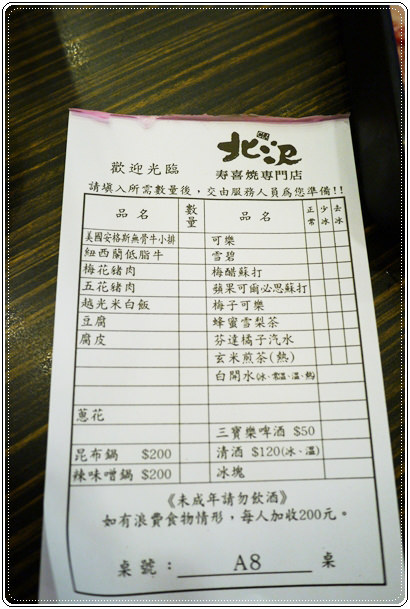 北沢
歡迎光臨 壽喜燒専門店
請填入所需數量後，交由服務人員為您準備!!
品名 數量 品名 正常 少冰 去冰
美國安格斯無骨牛小排 可樂
紐西蘭低脂牛 雪碧
梅花豬肉 梅醋蘇打
五花豬肉 蘋果可爾必思蘇打
越光米白飯 梅子可樂
豆腐 蜂蜜雪梨茶
腐皮 芬達橘子汽水
玄米煎茶(熱)
白開水(冰、常溫、溫、熱)
蔥花
三寶樂啤酒 $50
昆布鍋 $200 清酒 $120(冰、溫)
辣味噌鍋 $200 冰塊
《未成年請勿飲酒》
如有浪費食物情形，每人加收200元。
桌號： A8 桌